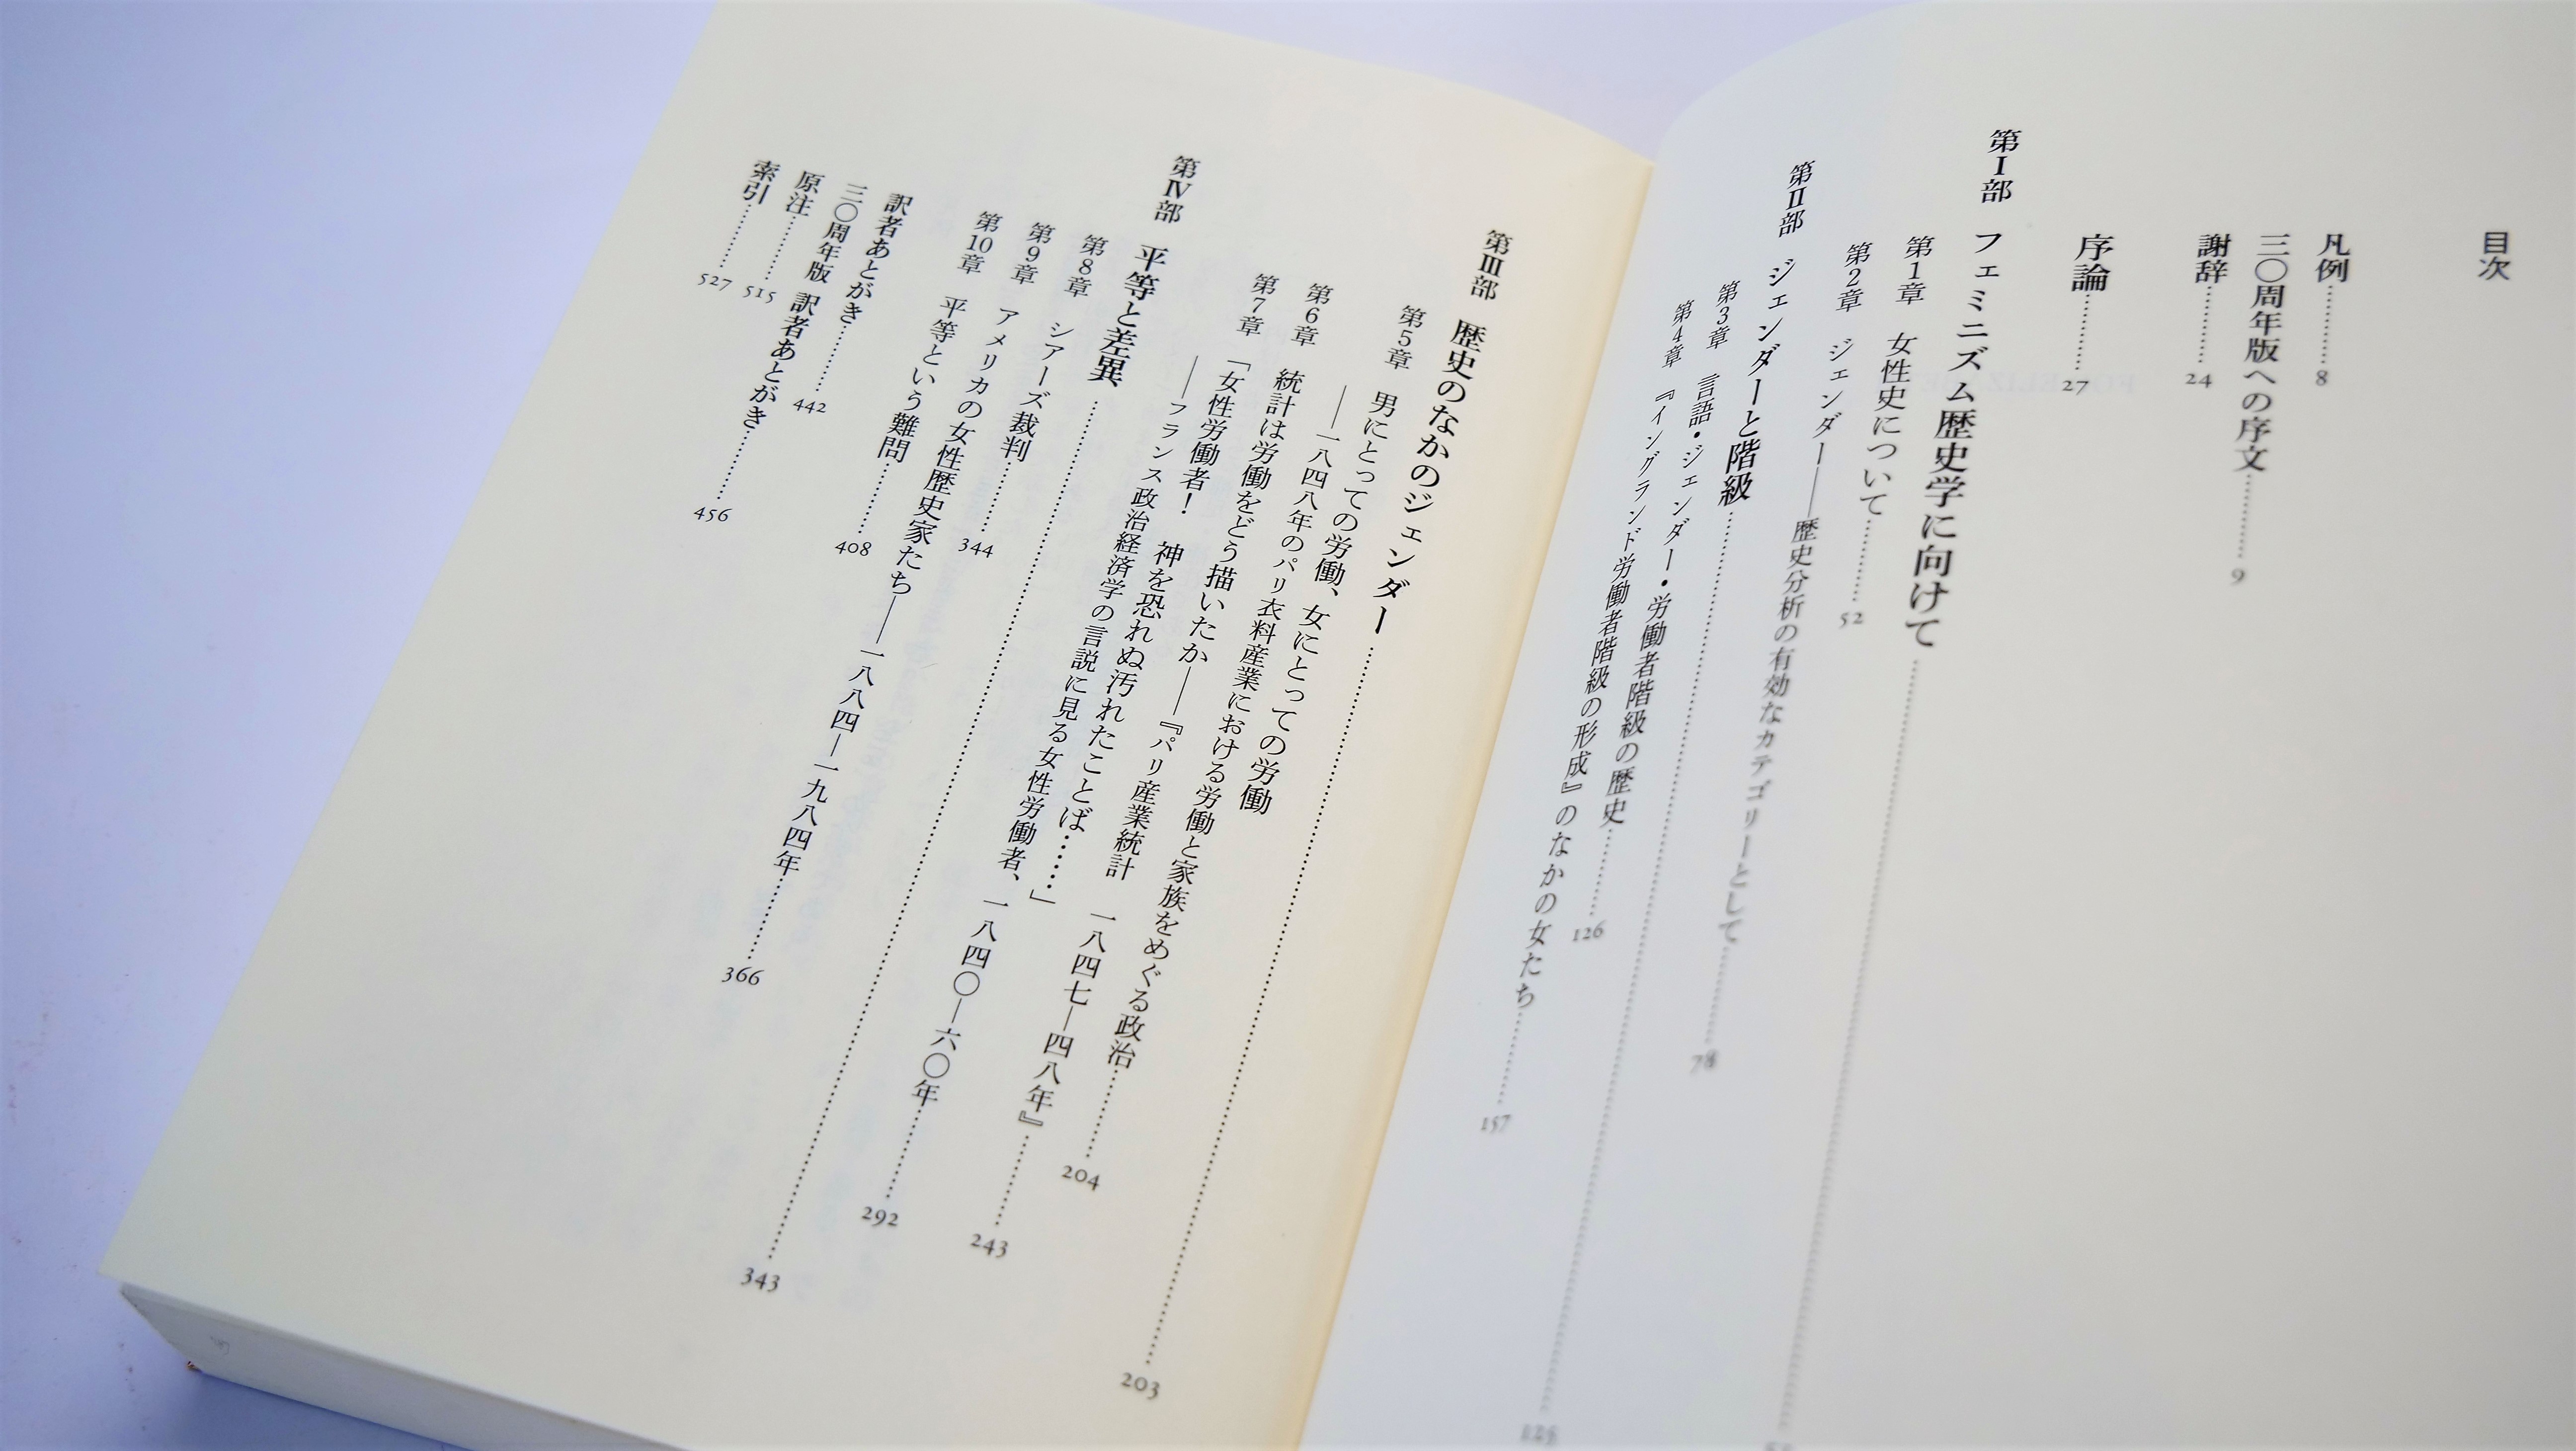 目次
凡例…………8
三〇周年版への序文…………9
謝辞…………24
序論…………27
第Ⅰ部　フェミニズム歴史学に向けて…………
第1章　女性史について…………52
第2章　ジェンダー――歴史分析の有効なカテゴリーとして…………78
第Ⅱ部　ジェンダーと階級…………125
第3章　言語・ジェンダー・労働者階級の歴史…………126
第4章　『イングランド労働者階級の形成』のなかの女たち…………157
第Ⅲ部　歴史のなかのジェンダー…………203
第5章　男にとっての労働、女にとっての労働
――一八四八年のパリ衣料産業における労働と家族をめぐる政治…………204
第6章　統計は労働をどう描いたか――『パリ産業統計　一八四七―四八年』…………243
第7章　「女性労働者！　神を恐れぬ汚れたことば……」
――フランス政治経済学の言説に見る女性労働者、一八四〇―六〇年…………292
第Ⅳ部　平等と差異…………343
第8章　シアーズ裁判…………344
第9章　アメリカの女性歴史家たち――一八八四―一九八四年…………366
第10章　平等という難問…………408
訳者あとがき…………442
三〇周年版　訳者あとがき…………456
原注…………515
索引…………527